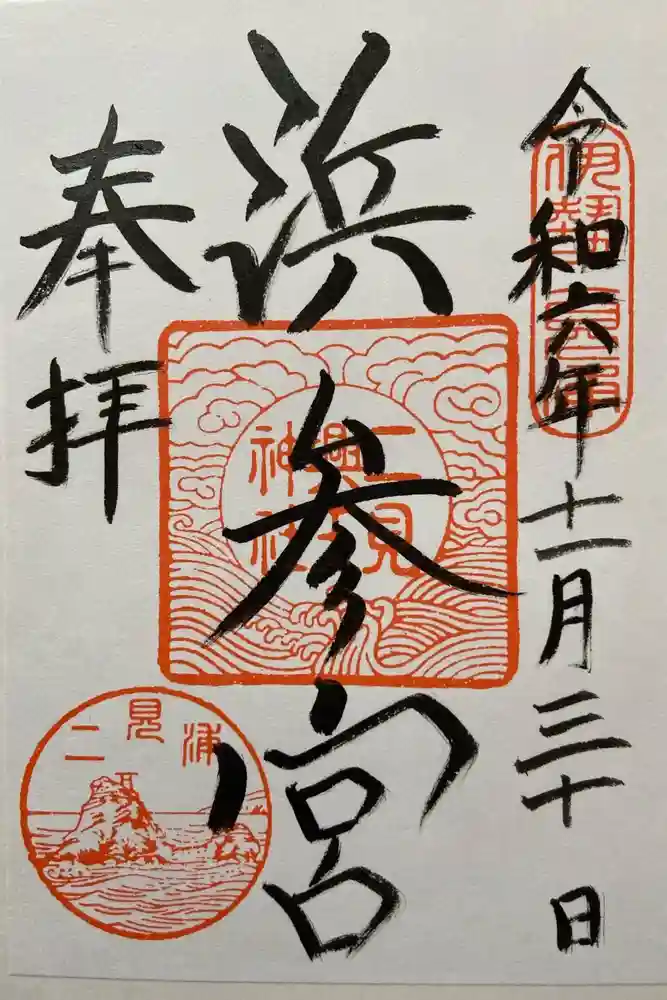 令和六年十一月三十日
伊勢
浜参宮
二見
興玉
神社
奉拝
二見浦